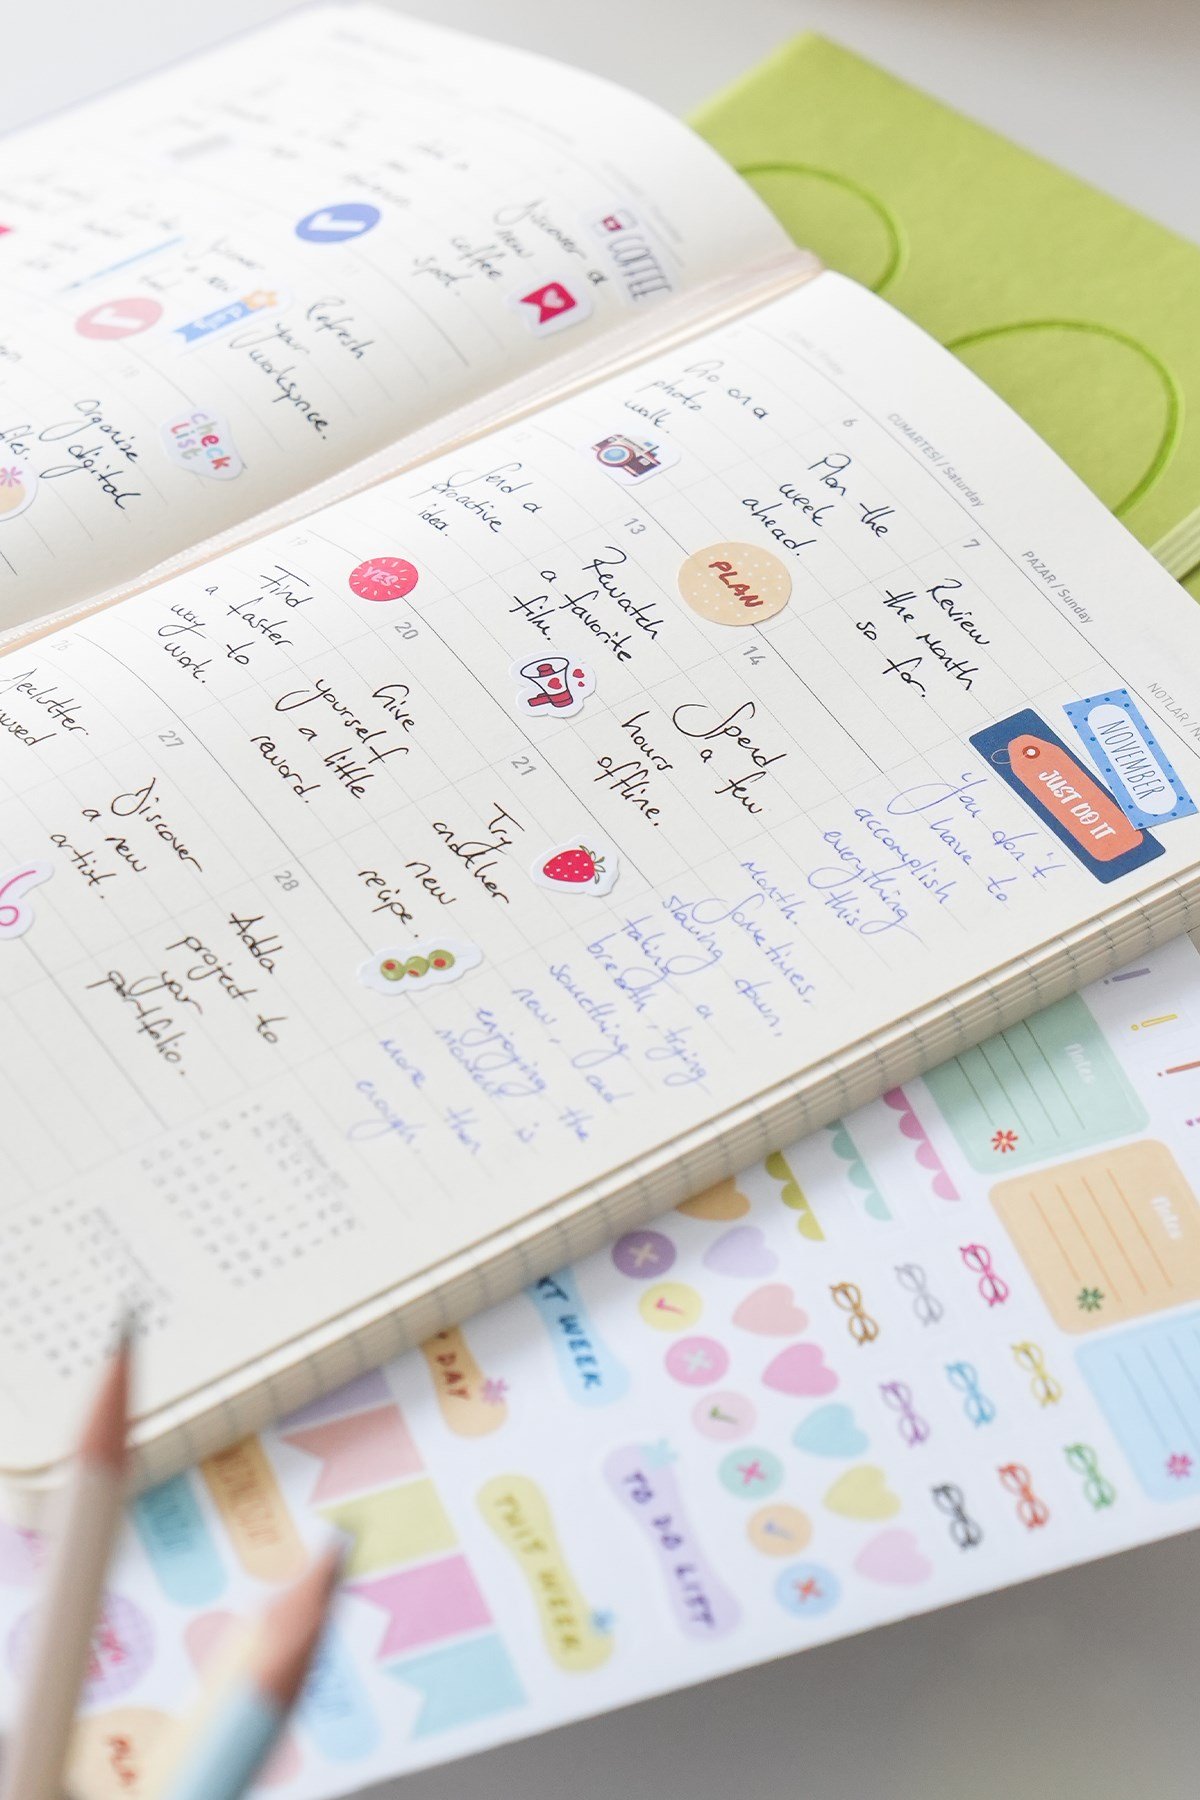 COFFEE
Discover a
new
coffee
spot.
Refresh
your
workspace.
check
list
Organize
digital
files.
CUMARTESİ / Saturday
PAZAR / Sunday
NOTLAR /
Go on a
photo
walk.
6
Plan the
week
ahead.
7
Review
the month
so far.
Send a
proactive
idea.
13
Rewatch
a favorite
film.
PLAN
14
Spend
a few
hours
offline.
19
Find
a faster
way to
work.
YES
20
Give
yourself
a little
reward.
21
Try
another
new
recipe.
26
Declutter
27
Discover
a new
artist.
28
Add a
project to
your
portfolio.
NOVEMBER
JUST DO IT
You don't
have to
accomplish
everything
this
month.
Sometimes,
slowing down,
taking a
breath, trying
something
new, and
enjoying the
moment is
more than
enough.
Notes
Notes
WEEK
DAY
THIS WEEK
TO DO LIST